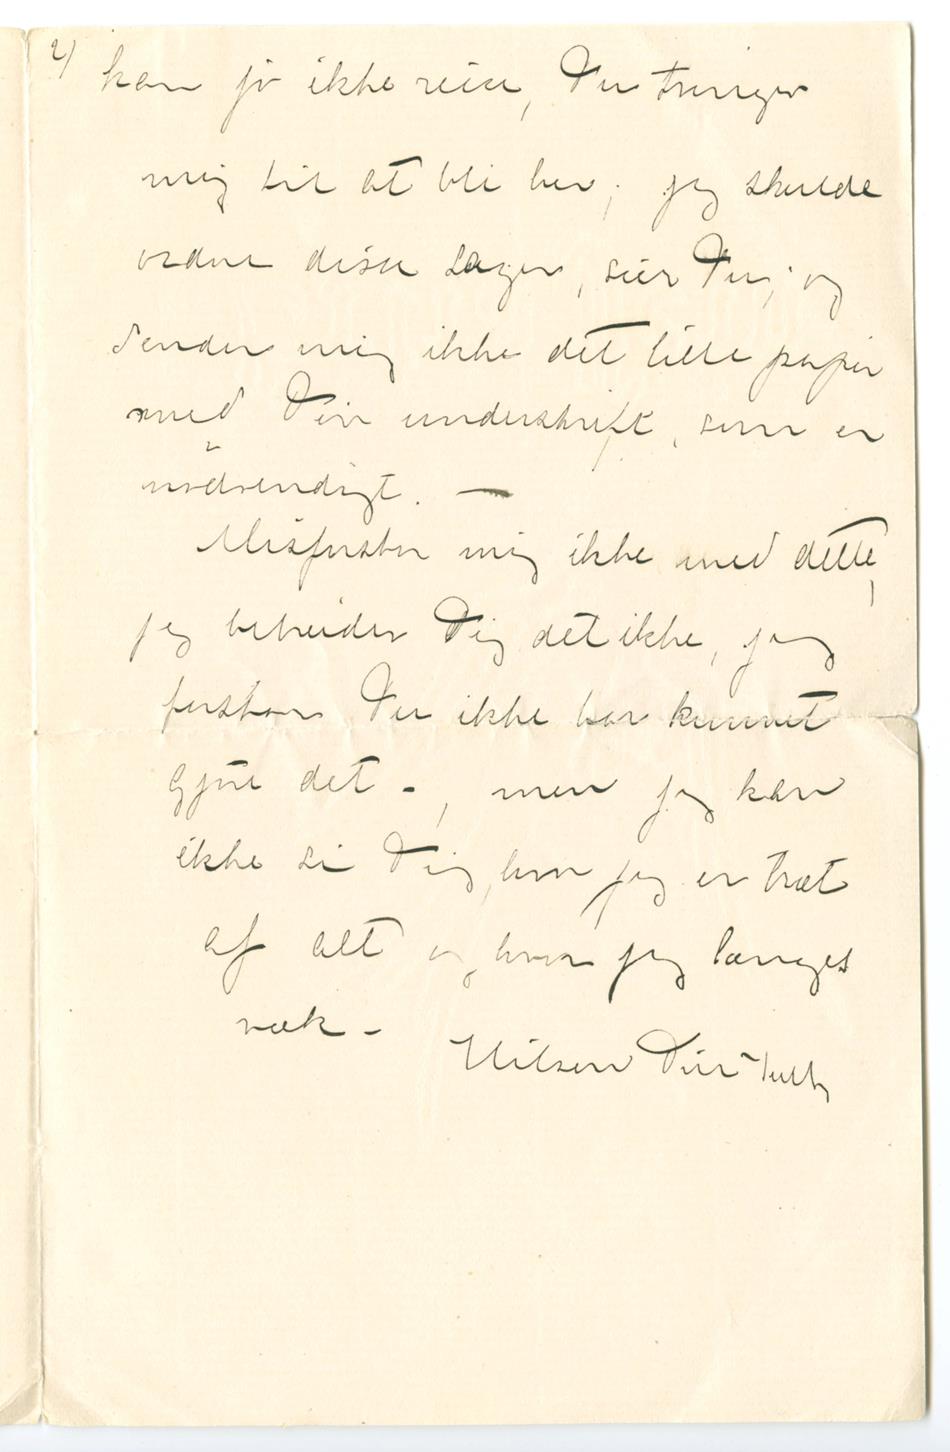 2)
kan jo ikke reise, Du tvinger
mig til at bli her; jeg skulde
ordne disse sager, sier Du; og
sender mig ikke det lille papir
med Din underskrift, som er
nødvendigt. —
Misforstaa mig ikke med dette,
jeg bebreider Dig det ikke, jeg
forstaar Du ikke har kunnet
gjøre det - , men jeg kan
ikke si Dig, hvor jeg er træt
af alt og hvor jeg længes
væk -
Hilsen Din Tulla